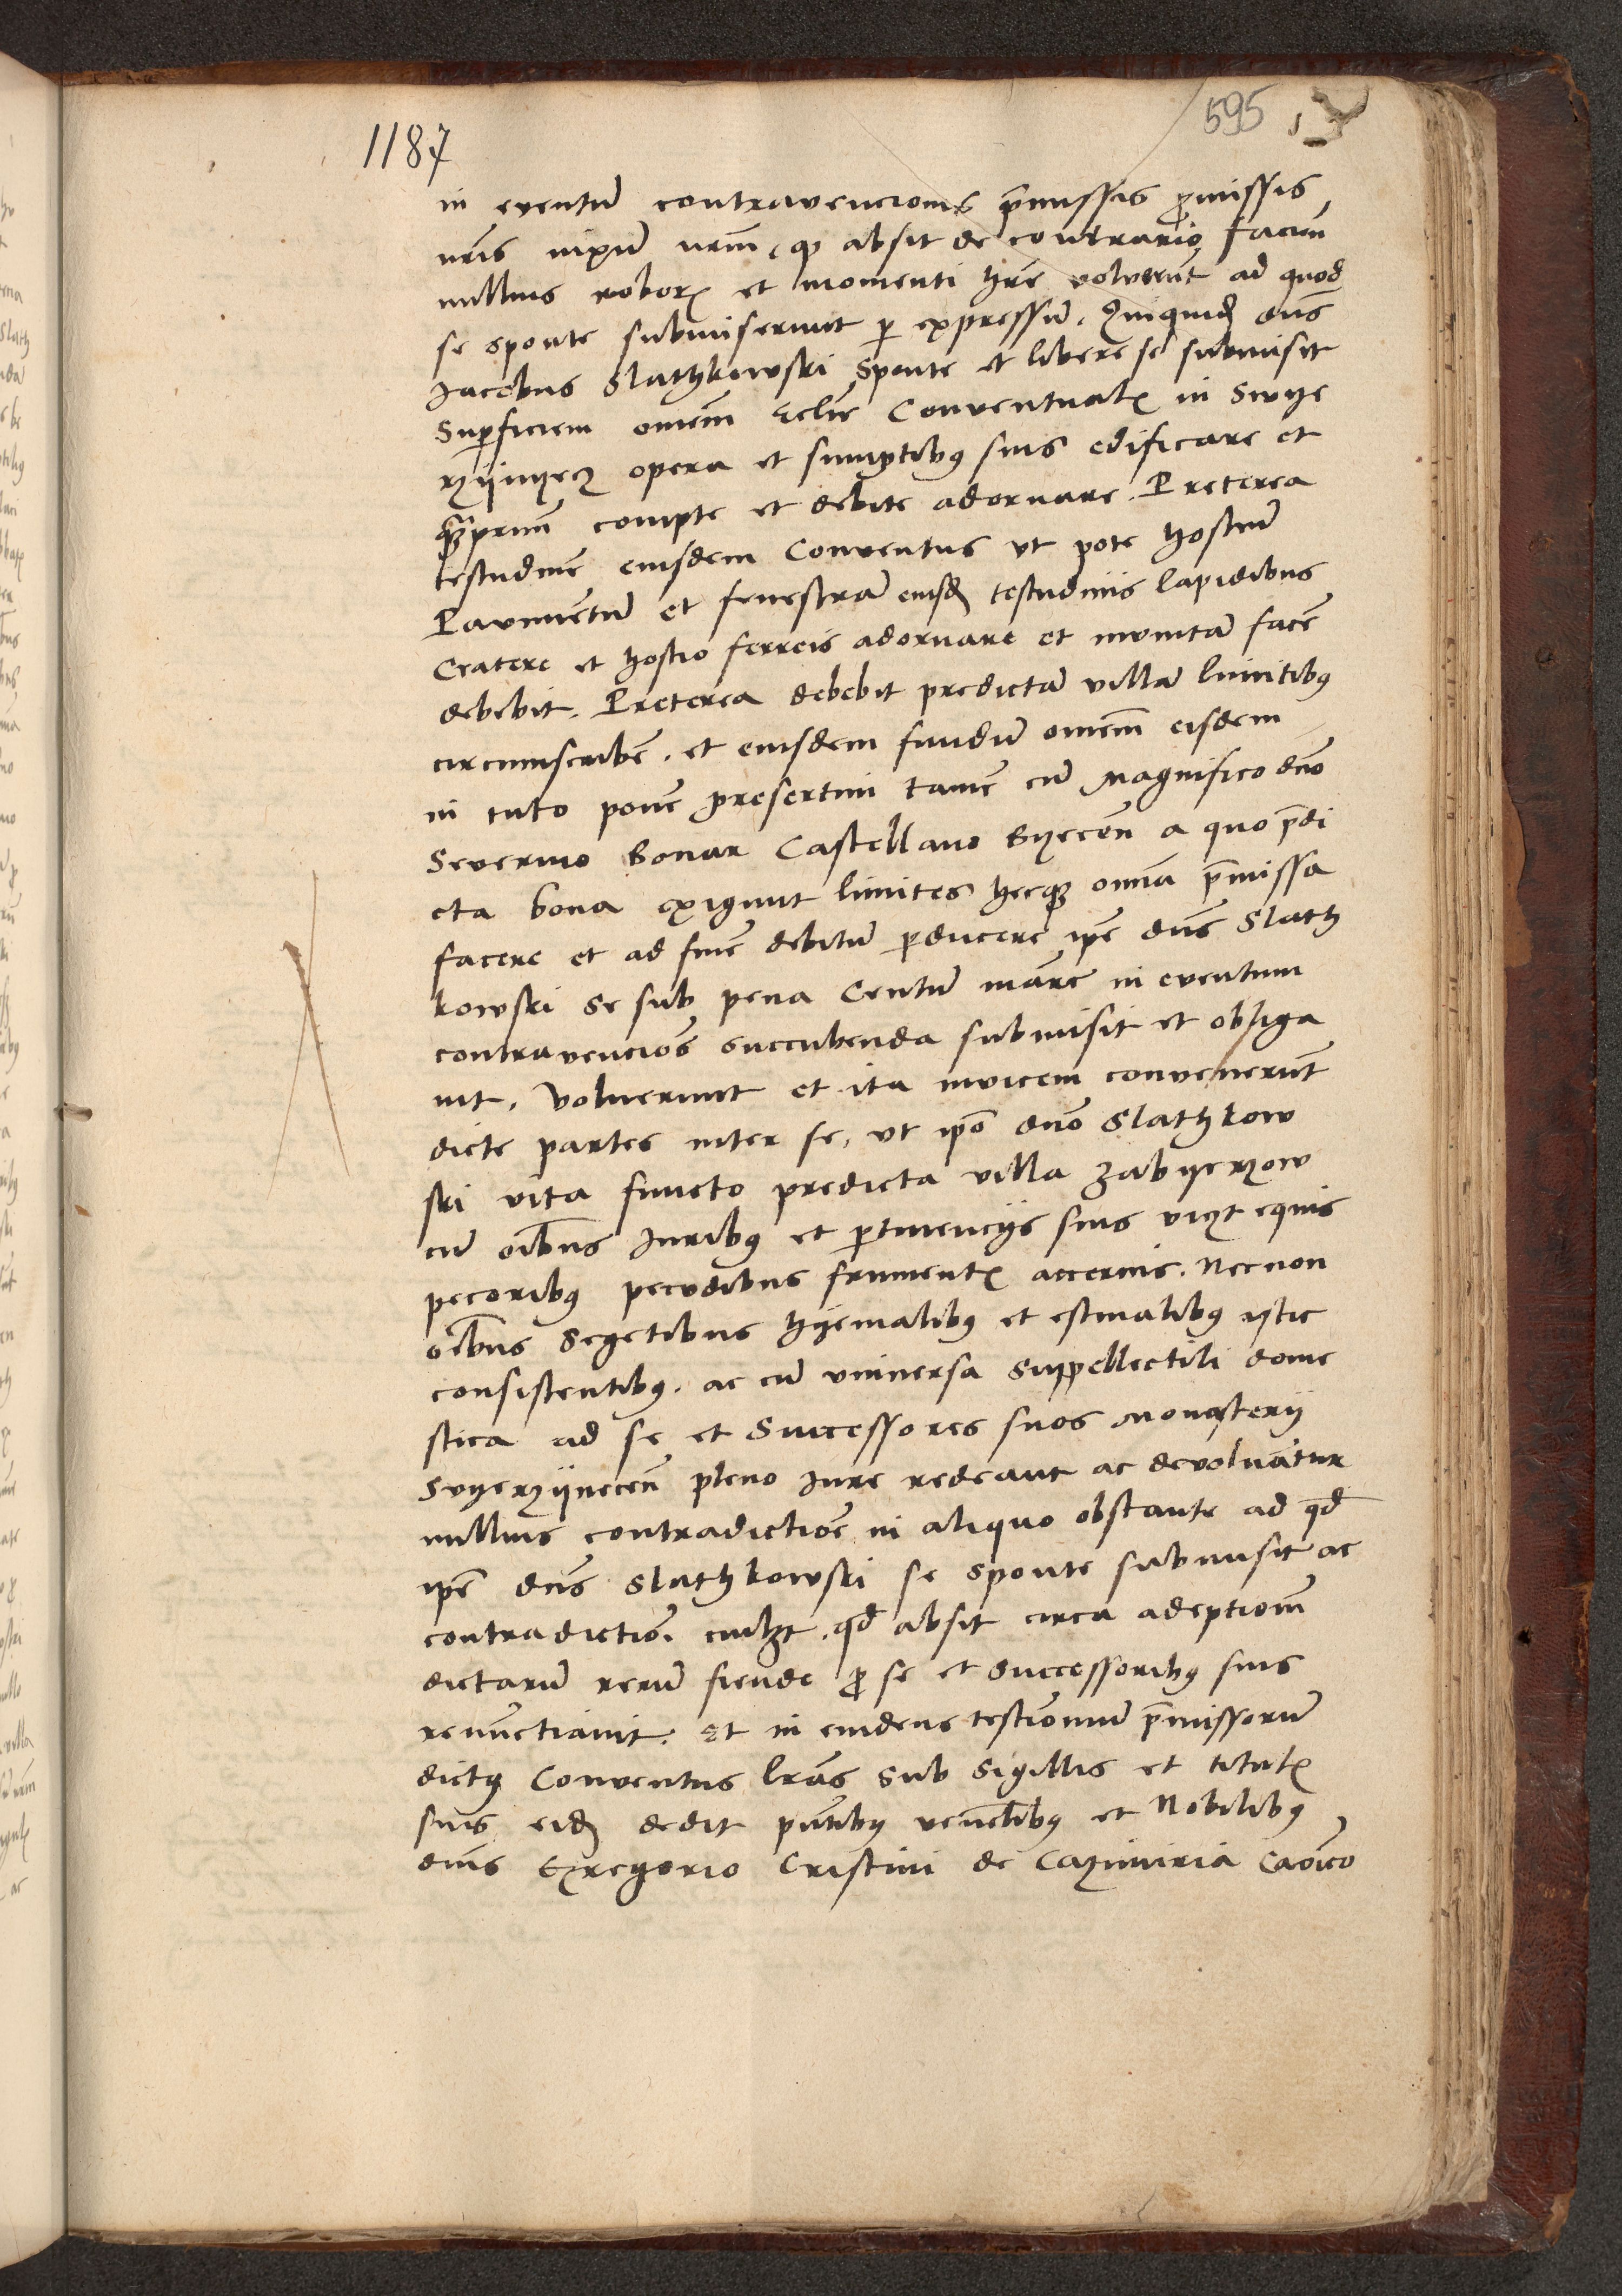 595
1187
in eventū contravencionis p̄missis ꝓmissis
nr̄is nixū nr̄m, qᷓ absit de contrario facien̄
nullius robor̄ et momenti hr̄e voluerūt ad quod
se sponte submiserunt ꝑ expressū. Quiquid̄ dn̄s
Jacobus Slathkowski sponte et libere se submisit
Superficiem om̄em Eclīe Conventual̄ in Swye
rzÿnyecz opera et sumptibꝰ suis edificare et
comptе et debite adornare. Preterea
testudinē eiusdem Conventus vt pote hostiū
Pavimentū et fenestrā eiusd̄ testudinis lapidibus
Cratere et hostio ferreis adornare et munitā facēr
debebit. Preterea debebit predictā villā limitibꝰ
circumscribēr. et eiusdem fundū om̄em eisdem
in tuto ponēr presertim tamē cū Magnifico dn̄o
Severino Bonar Castellano Byecen̄ a quo p̄di
cta bona exigunt limites heceqꝫ om̄ia p̄missa
facere et ad finē debitū ꝑducere ip̄e dn̄s Slath
kowski se sub pena Centū marc̄ in eventum
contravencionis succubenda submisit et obliga
uit. Voluerunt et ita invicem convenerūt
dicte partes inter se, vt ip̄o dn̄o Slathkow
ski vita functo predicta villa Zabyerzow
cū oībus Juribꝰ et ꝑtinencÿs suis vizt equis
pecoribꝰ pecudibus frument̄ accervis. Necnon
oībus Segetibus hyemalibꝰ et estiualibꝰ istic
consistentibꝰ. ac cū vniuersa Suppellectili dome
stica ad se et Successores suos Monasterÿ
Svyerzÿnecen̄ pleno Jure redeant ac devoluātur
nullius contradictiōe in aliquo obstante ad qd̄
ip̄e dn̄s Slathkowski se sponte submisit ac
contradictiōi cuilꝫt. qd̄ absit circa adeptiōnm
dictarū rerū fiende ꝓ se et Successoribꝰ suis
renūctiauit. Et in euidens testiomiū p̄missorū
dictꝰ Conventus lr̄as Sub Sigillis et titul̄
suis eid̄ dedit pn̄tibꝰ ven̄elibꝰ et Nobilibꝰ
dn̄is Gregorio Cristini de Cazimiria Caōico